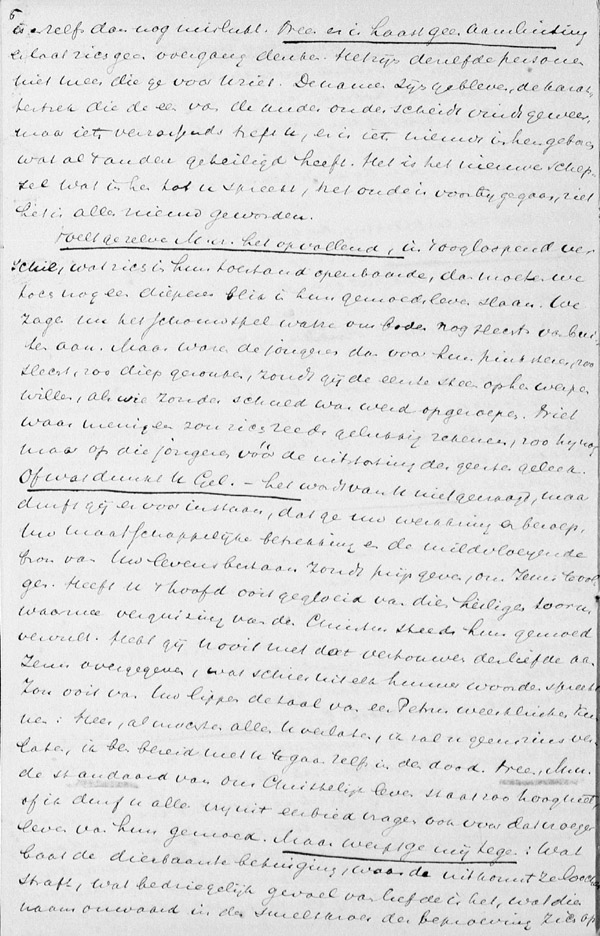 6
is zelfs dan nog mislukt. Neen er is haast geen aanleiding
er laat zich geen overgang denken. Het zijn dezelfde personen
niet meer die ge voor U ziet. De namen zijn gebleven, de karak-
tertrek die de een van de ander onderscheidt vindt ge weer,
maar iets verrassends treft U, er is iets nieuws in hen geboren
wat al 't andere geheiligd heeft. Het is het nieuwe schep-
sel wat in hen tot u spreekt, het oude is voorbij gegaan, ziet
het is alles nieuw geworden.
Treft gezelve M.H. het opvallend, in 't oogloopend ver-
schil, wat zich in hun toestand openbaarde, dan moeten we
toch nog een diepere blik in hun gemoedsleven slaan. We
zagen nu het schouwspel wat ons boden nog slechts van bui-
ten aan. Maar waren de jongeren dan voor hun pinksteren, zoo
slecht, zoo diep gezonken, zoudt gij de eerste steen op hen werpen
willen, als wie zonder schuld was werd opgeroepen. Niet
waar menigeen zou zich reeds gelukkig rekenen, zoo hij nog
maar op die jongeren vóór de uitstorting des geestes geleek.
Of wat dunkt U Gel. – het wordt van U niet gevraagd, maar
durft gij er voor instaan, dat ge uw werkkring en beroep,
Uw maatschappelijke betrekking en de mildvloeyende
bron van Uw levensbestaan zoudt prijs geven, om Jezus te vol-
gen. Heeft U 't hoofd ooit gegloeid van dien heiligen toorn
waarmee verguizing van den Christus steeds hun gemoed
vervult. Hebt gij U ooit met dat vertrouwen der liefde aan
Jezus overgegeven, wat schier uit elk hunner woorden spreekt
Zou ooit van Uw lippen de taal van een Petrus weerklinken kun-
nen: Heer, al moesten allen U verlaten, ik zal U geenszins ver-
laten, ik ben bereid met U te gaan zelfs in den dood. Neen, M.H.
de standaard van ons Christelijk leven staat zoo hoog niet,
of ik durf U allen vrij uit eerbied vragen ook voor dat vroegere
leven van hun gemoed. Maar werpt ge mij tegen: Wat
baat de dierbaarste betuiging, waar de uitkomst ze loochen-
straft, wat bedriegelijk gevoel van liefde is het, wat die
naam onwaard in den smeltkroes der beproeving zich op